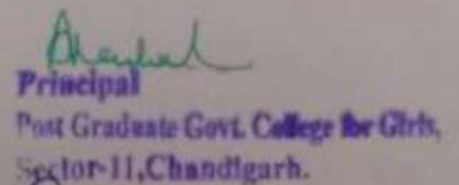 Principal
Post Graduate Govt. College for Girls,
Sector-11,Chandigarh.